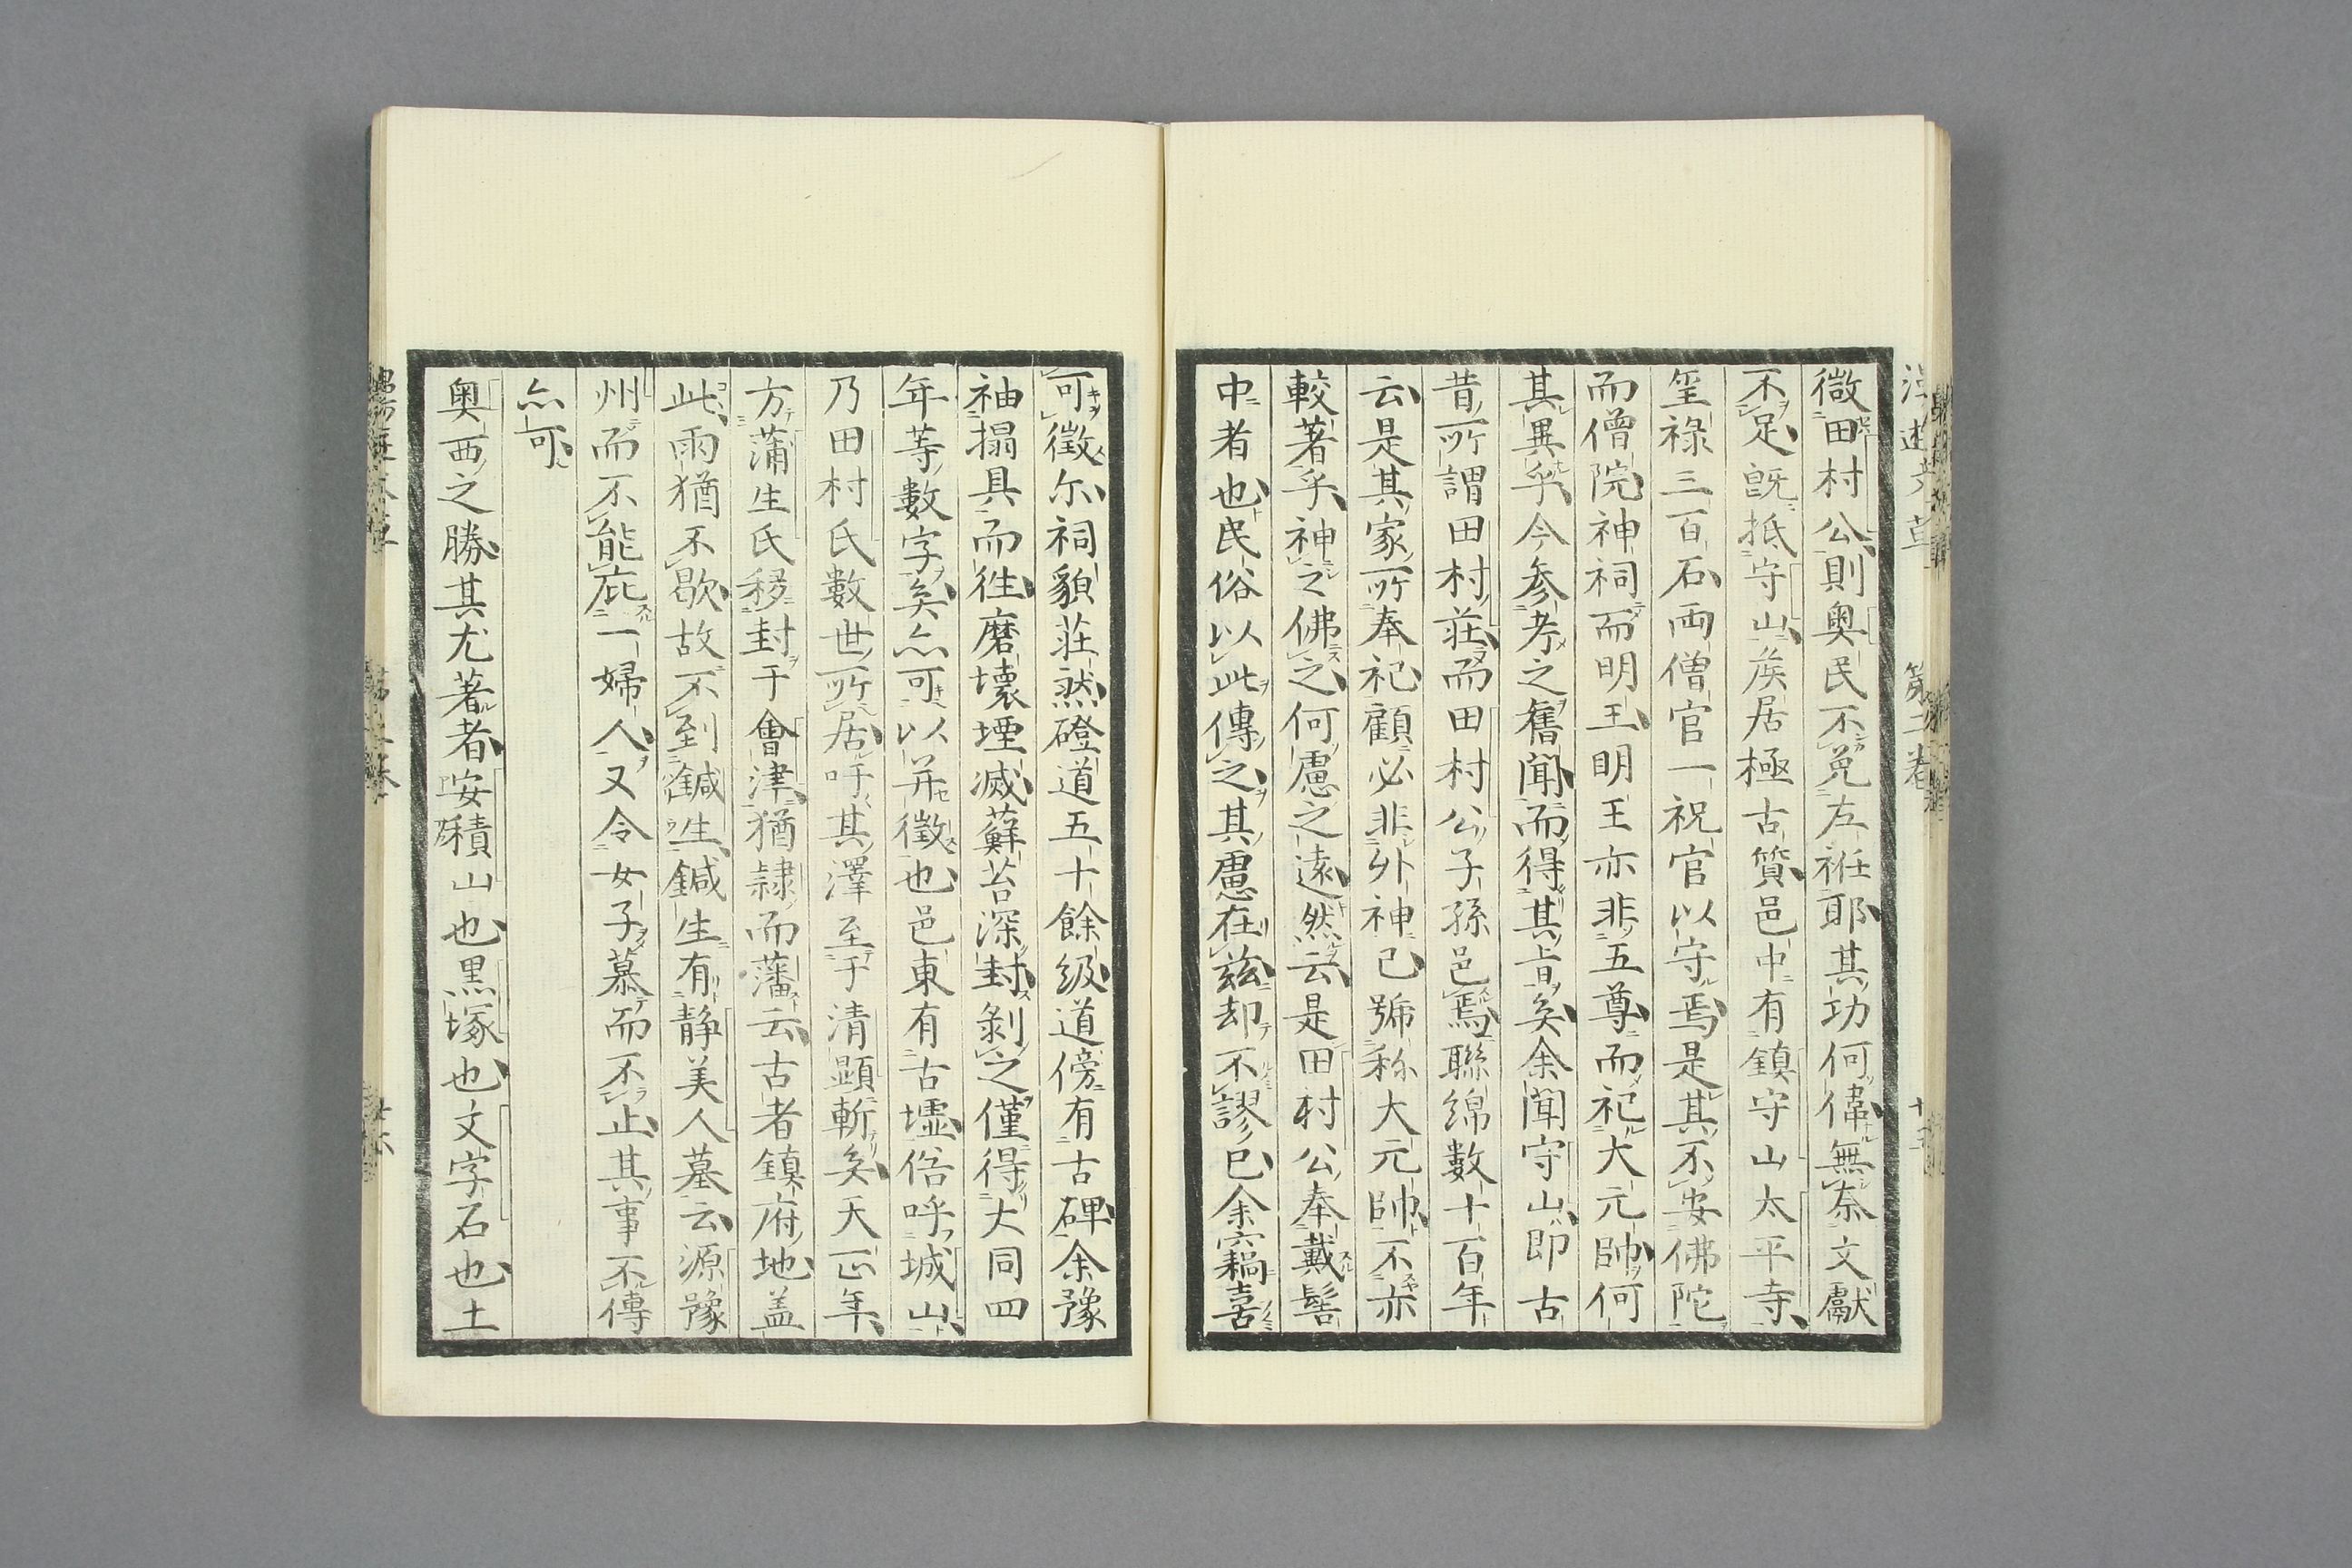 微田村公則奥民不免左衽耶其功何偉無奈文獻
不足既抵守山矦居極古質邑中有鎮守山太平寺
筌祿三百石両僧官一祝官以守焉是其不安佛陀
而僧院神祠而明王明王亦非五尊而祀大元帥何
其異乎今参考之舊聞而得其旨矣余聞守山即古
昔所謂田村莊而田村公子孫邑焉聯綿數十百年
云是其家所奉祀顧必非外神已號称大元帥不亦
較著乎神之佛之何慮之遠然云是田村公奉戴髻
中者也民俗以此傳之其慮在兹却不謬已余窃喜
可徵尔祠貌莊然磴道五十餘級道傍有古碑余豫
袖搨具而徃磨壞堙滅蘚苔深封剝之僅得大同四
年等數字矣亦可以并徵也邑東有古墟俗呼城山
乃田村氏數世所居呼其澤至于清顕斬矣天正年
方蒲生氏移封于會津猶隷而藩云古者鎮府地盖
此雨猶不歇故不到鍼生鍼生有静美人墓云源豫
州而不能庇一婦人又令女子慕而不止其事不傳
亦可
奥西之勝其尤著者安積山也黒塚也文字石也土
第二卷